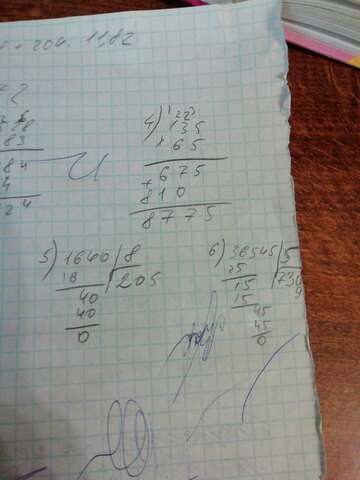 + 204. 11,82
83
84
4
24
4) 135
× 65
675
+
810
8775
5) 1640 | 8
16 | 205
40
40
0
6) 36545 | 5
35 | 730
15 9
15
45
45
0